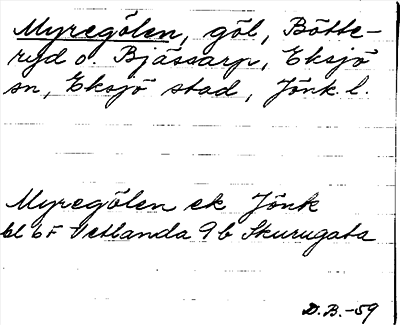 Myregölen, göl, Bötte-
ryd o. Bjässarp, Eksjö
sn, Eksjö stad, Jönk. l.
Myregölen ek Jönk
bl 6F Vetlanda 9b Skurugata
D.B.-59